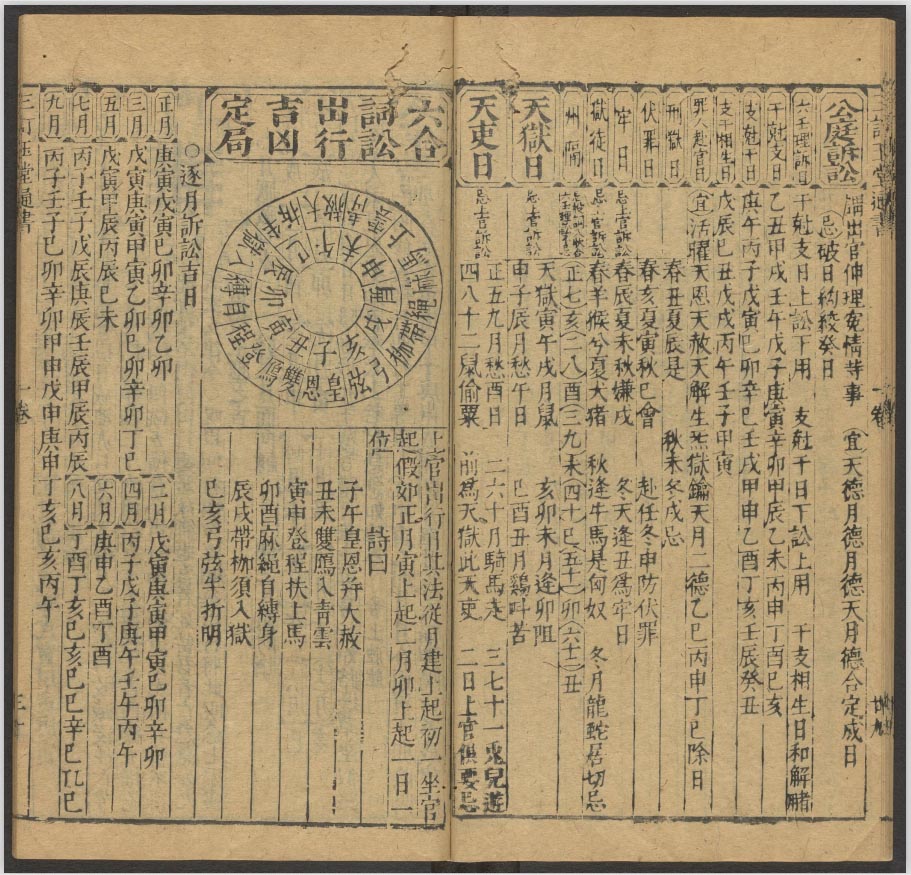 公庭訴訟
謂出官伸理冤情等事 宜天德月德天月德合定成日
忌破日約絞癸日
六壬理訴日 干尅支日上訟下用 支尅干日下訟上用 干支相生日和解賭
干尅支日 乙丑甲戌壬午戊子庚寅辛卯甲辰乙未丙申丁酉己亥
支尅干日 庚午丙子戊寅己卯辛巳壬戌甲申乙酉丁亥壬辰癸丑
支干相生日 戊辰己丑戊戌丙午壬子甲寅
罪人赴官日 宜活曜天恩天赦天解生炁獄鑰天月二德乙巳丙申丁巳除日
刑獄日 春丑夏辰是 秋未冬戌忌
伏罪日 春亥夏寅秋巳會 赴任冬申防伏罪
牢日 忌上官訴訟 春辰夏未秋嫌戌 冬天逢丑爲牢日
獄徒日 忌上官訴訟 春羊猴兮夏犬猪 秋逢牛馬是匈奴 冬月龍蛇居切忌
州隔 正七亥二八酉三九未四十巳五十一卯六十二丑
天獄日 忌上官訴訟 天獄寅午戌月鼠 亥卯未月逢卯阻
申子辰月愁午日 巳酉丑月鷄呌苦
天吏日 忌上官訴訟 正五九月愁酉日 二六十月騎馬走 三七十一兎兒遊
四八十二鼠偷粟 前爲天獄此天吏 二日上官俱要忌
一卷
廿九
六合訴訟出行吉凶定局
子 丑 寅 卯 辰 巳 午 未 申 酉 戌 亥
皇恩 雙鴈 登程 自縛 入獄 半折 大赦 青雲 上馬 麻繩 帶枷 弓弦
上官出行用其法從月建上起初一坐官
起假如正月寅上起二月卯上起一日一
位 詩曰
子午皇恩并大赦
丑未雙鴈入青雲
寅申登程扶上馬
卯酉麻繩自縛身
辰戌帶枷須入獄
巳亥弓弦半折明
○逐月訴訟吉日
正月 庚寅戊寅己卯辛卯乙卯 二月 戊寅庚寅甲寅己卯辛卯
三月 戊寅庚寅甲寅乙卯己卯辛卯丁巳 四月 丙子戊子庚午壬午丙午
五月 戊寅甲辰丙辰己未 六月 庚申乙酉丁酉
七月 丙子壬子戊辰庚辰壬辰甲辰丙辰 八月 丁酉丁亥己亥乙巳辛巳癸巳
九月 丙子壬子己卯辛卯甲申戊申庚申丁亥乙亥丙午
一卷
三十